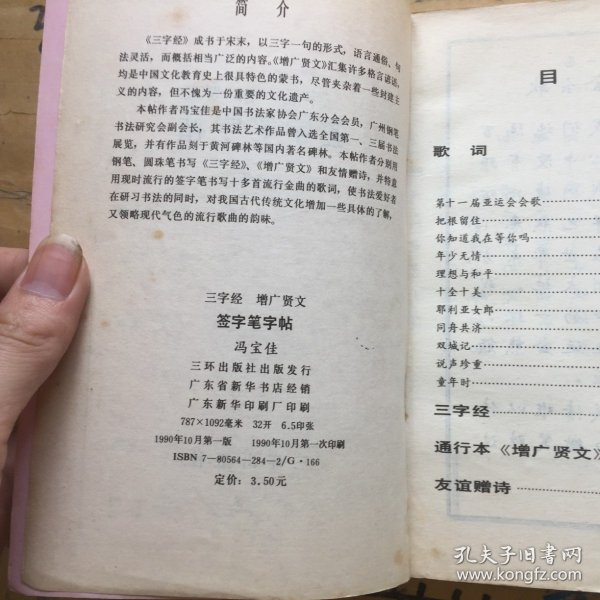 简 介
《三字经》成书于宋末，以三字一句的形式，语言通俗、句
法灵活，而概括相当广泛的内容。《增广贤文》汇集许多格言谚语，
均是中国文化教育史上很具特色的蒙书，尽管夹杂着一些封建主
义的内容，但不愧为一份重要的文化遗产。
本帖作者冯宝佳是中国书法家协会广东分会会员，广州钢笔
书法研究会副会长，其书法艺术作品曾入选全国第一、三届书法
展览，并有作品刻于黄河碑林等国内著名碑林。本帖作者分别用
钢笔、圆珠笔书写《三字经》、《增广贤文》和友情赠诗，并特意
用现时流行的签字笔书写十多首流行金曲的歌词，使书法爱好者
在研习书法的同时，对我国古代传统文化增加一些具体的了解，
又领略现代气色的流行歌曲的韵味。
三字经 增广贤文
签字笔字帖
冯宝佳
三环出版社出版发行
广东省新华书店经销
广东新华印刷厂印刷
787×1092毫米 32开 6.5印张
1990年10月第一版 1990年10月第一次印刷
ISBN 7—80564—284—2/G·166
定价：3.50元
目
歌 词
第十一届亚运会会歌
把根留住
你知道我在等你吗
年少无情
理想与和平
十全十美
耶利亚女郎
同舟共济
双城记
说声珍重
童年时
三字经
通行本《增广贤文》
友谊赠诗
孔夫子旧书网
www.kongfz.com